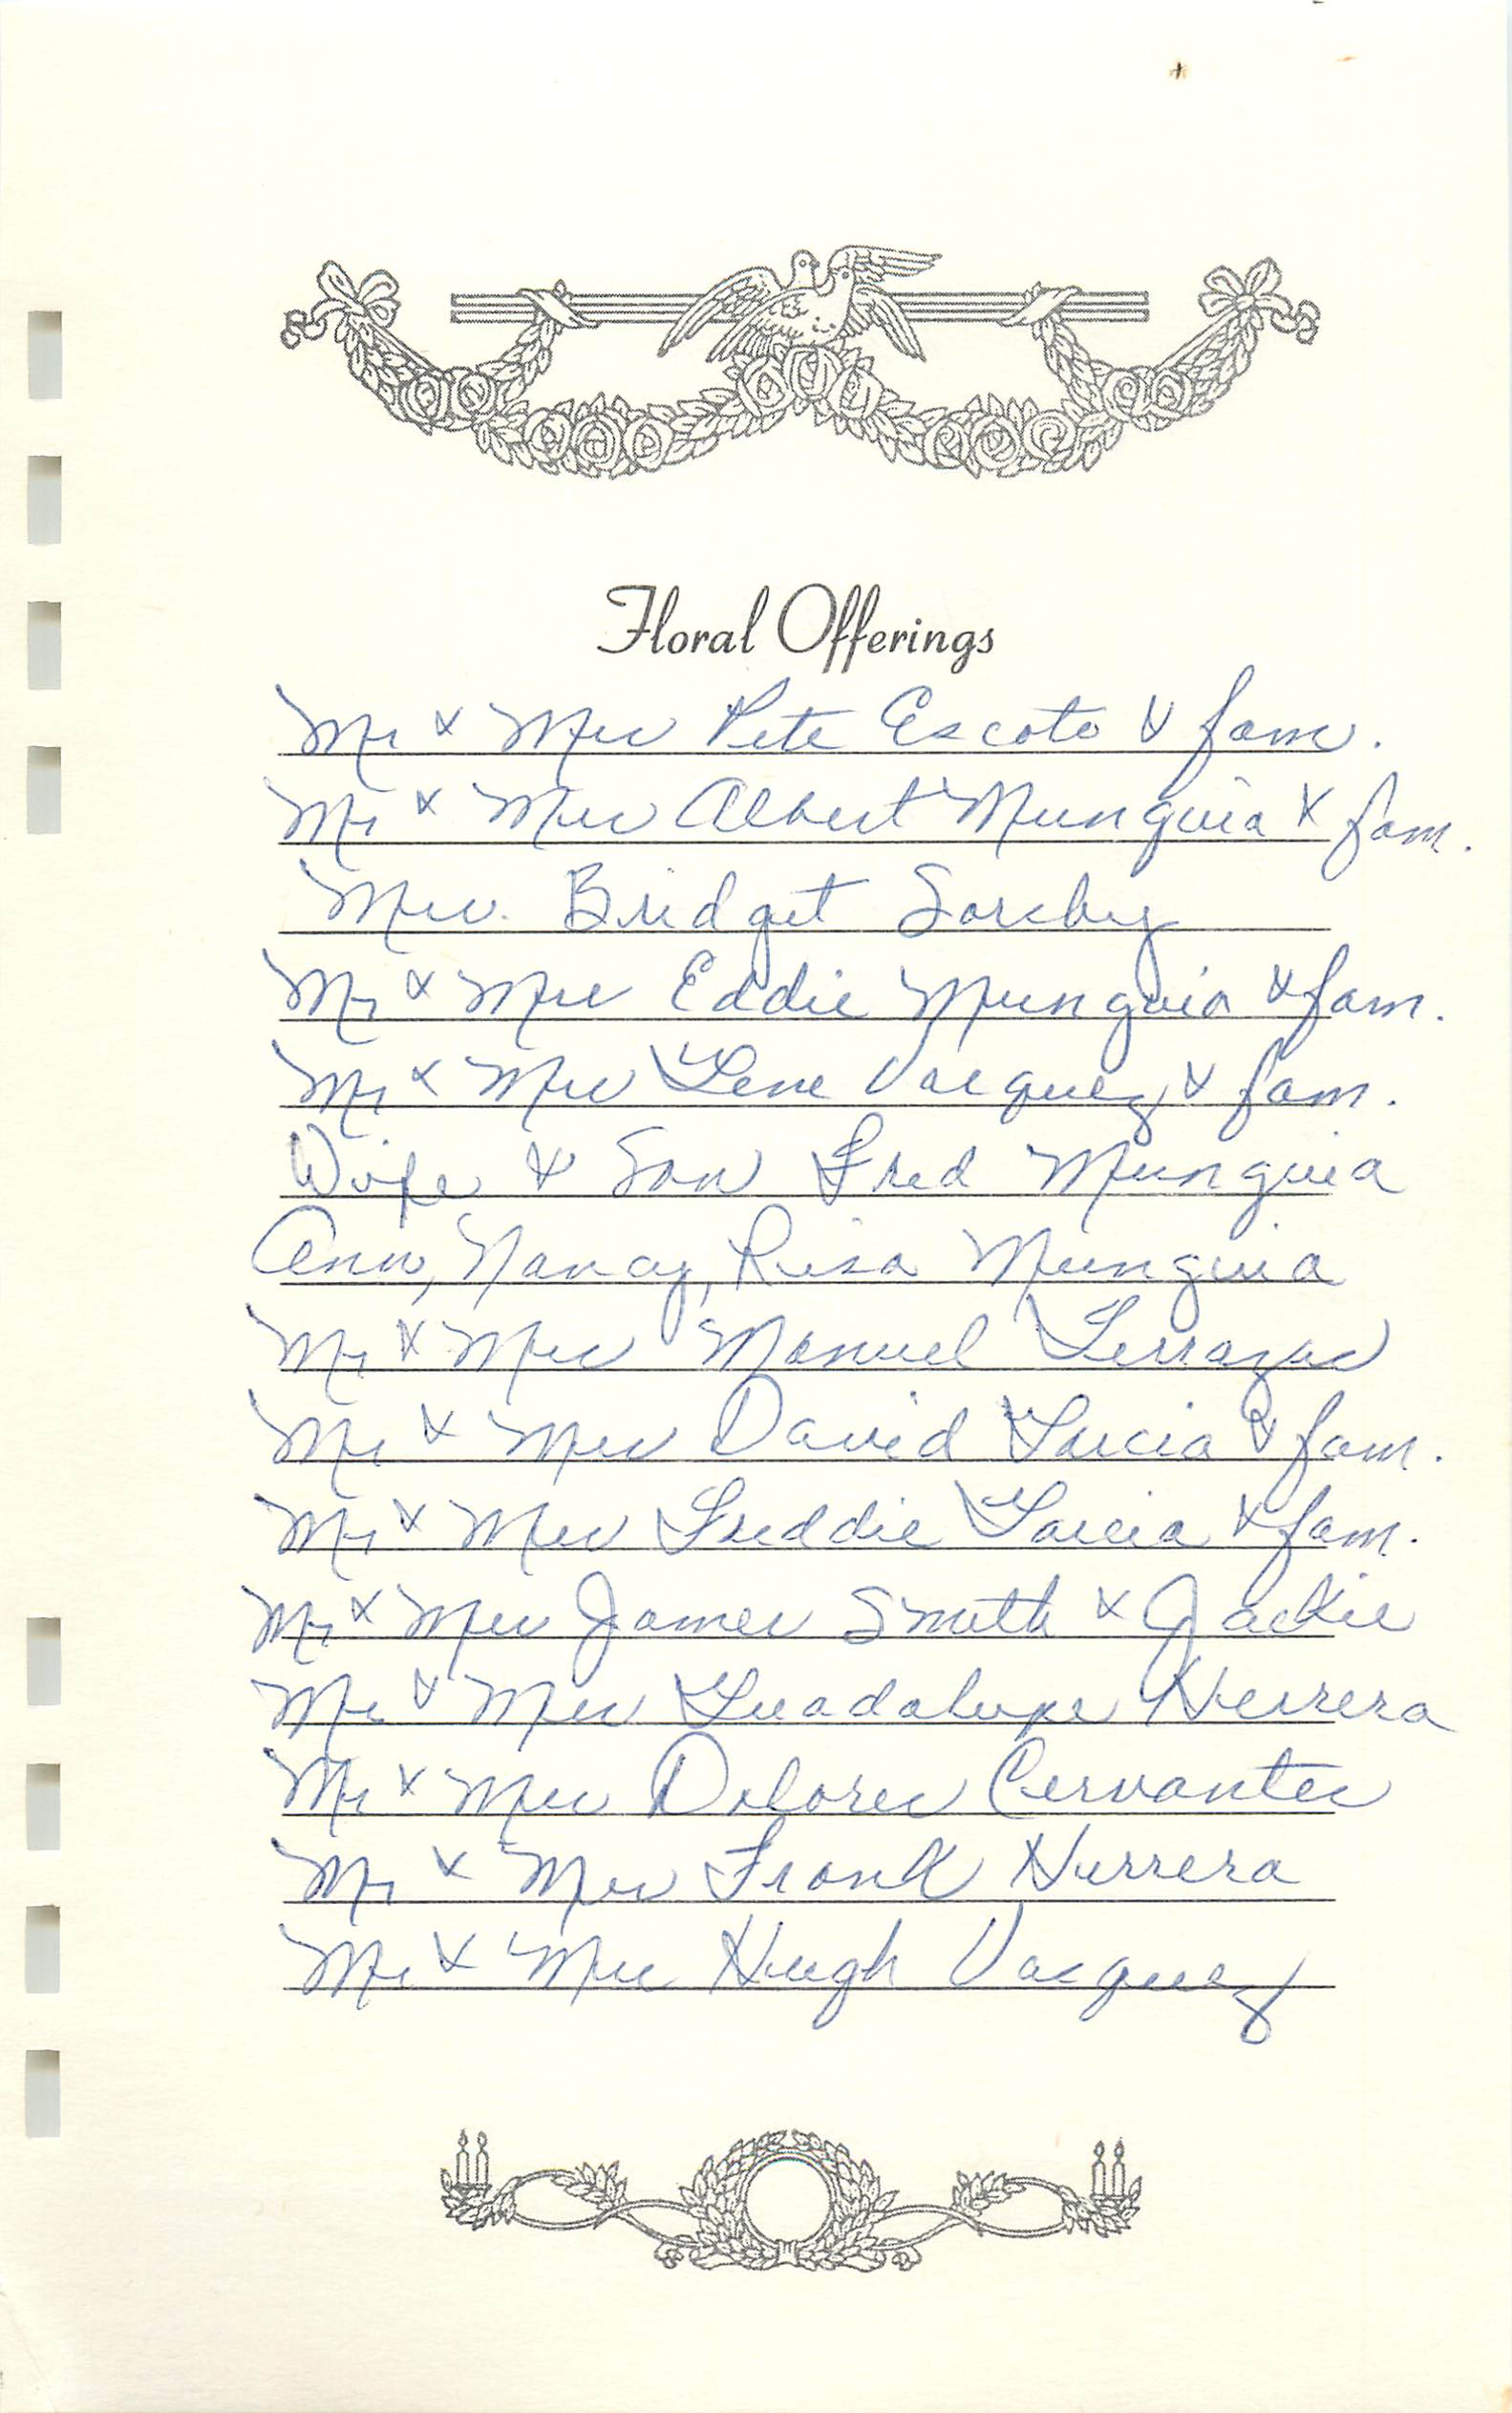 Floral Offerings
Mr & Mrs Pete Escoto & fam.
Mr & Mrs Albert Munguia & fam.
Mrs. Bridget Soreby
Mr & Mrs Eddie Munguia & fam.
Mr & Mrs Gene Vasquez & fam.
Wife & Son Fred Munguia
Ann, Nancy, Risa Munguia
Mr & Mrs Manuel Terrazas
Mr & Mrs David Garcia & fam.
Mr & Mrs Freddie Garcia & fam.
Mr & Mrs James Smith & Jackie
Mr & Mrs Guadalupe Herrera
Mr & Mrs Dolores Cervantes
Mr & Mrs Frank Herrera
Mr & Mrs Hugh Vasquez